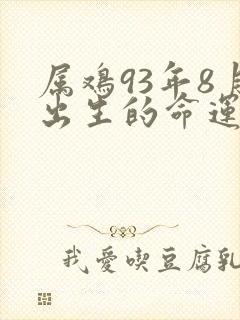 属鸡93年8月
出生的命運
我愛喫豆腐乳